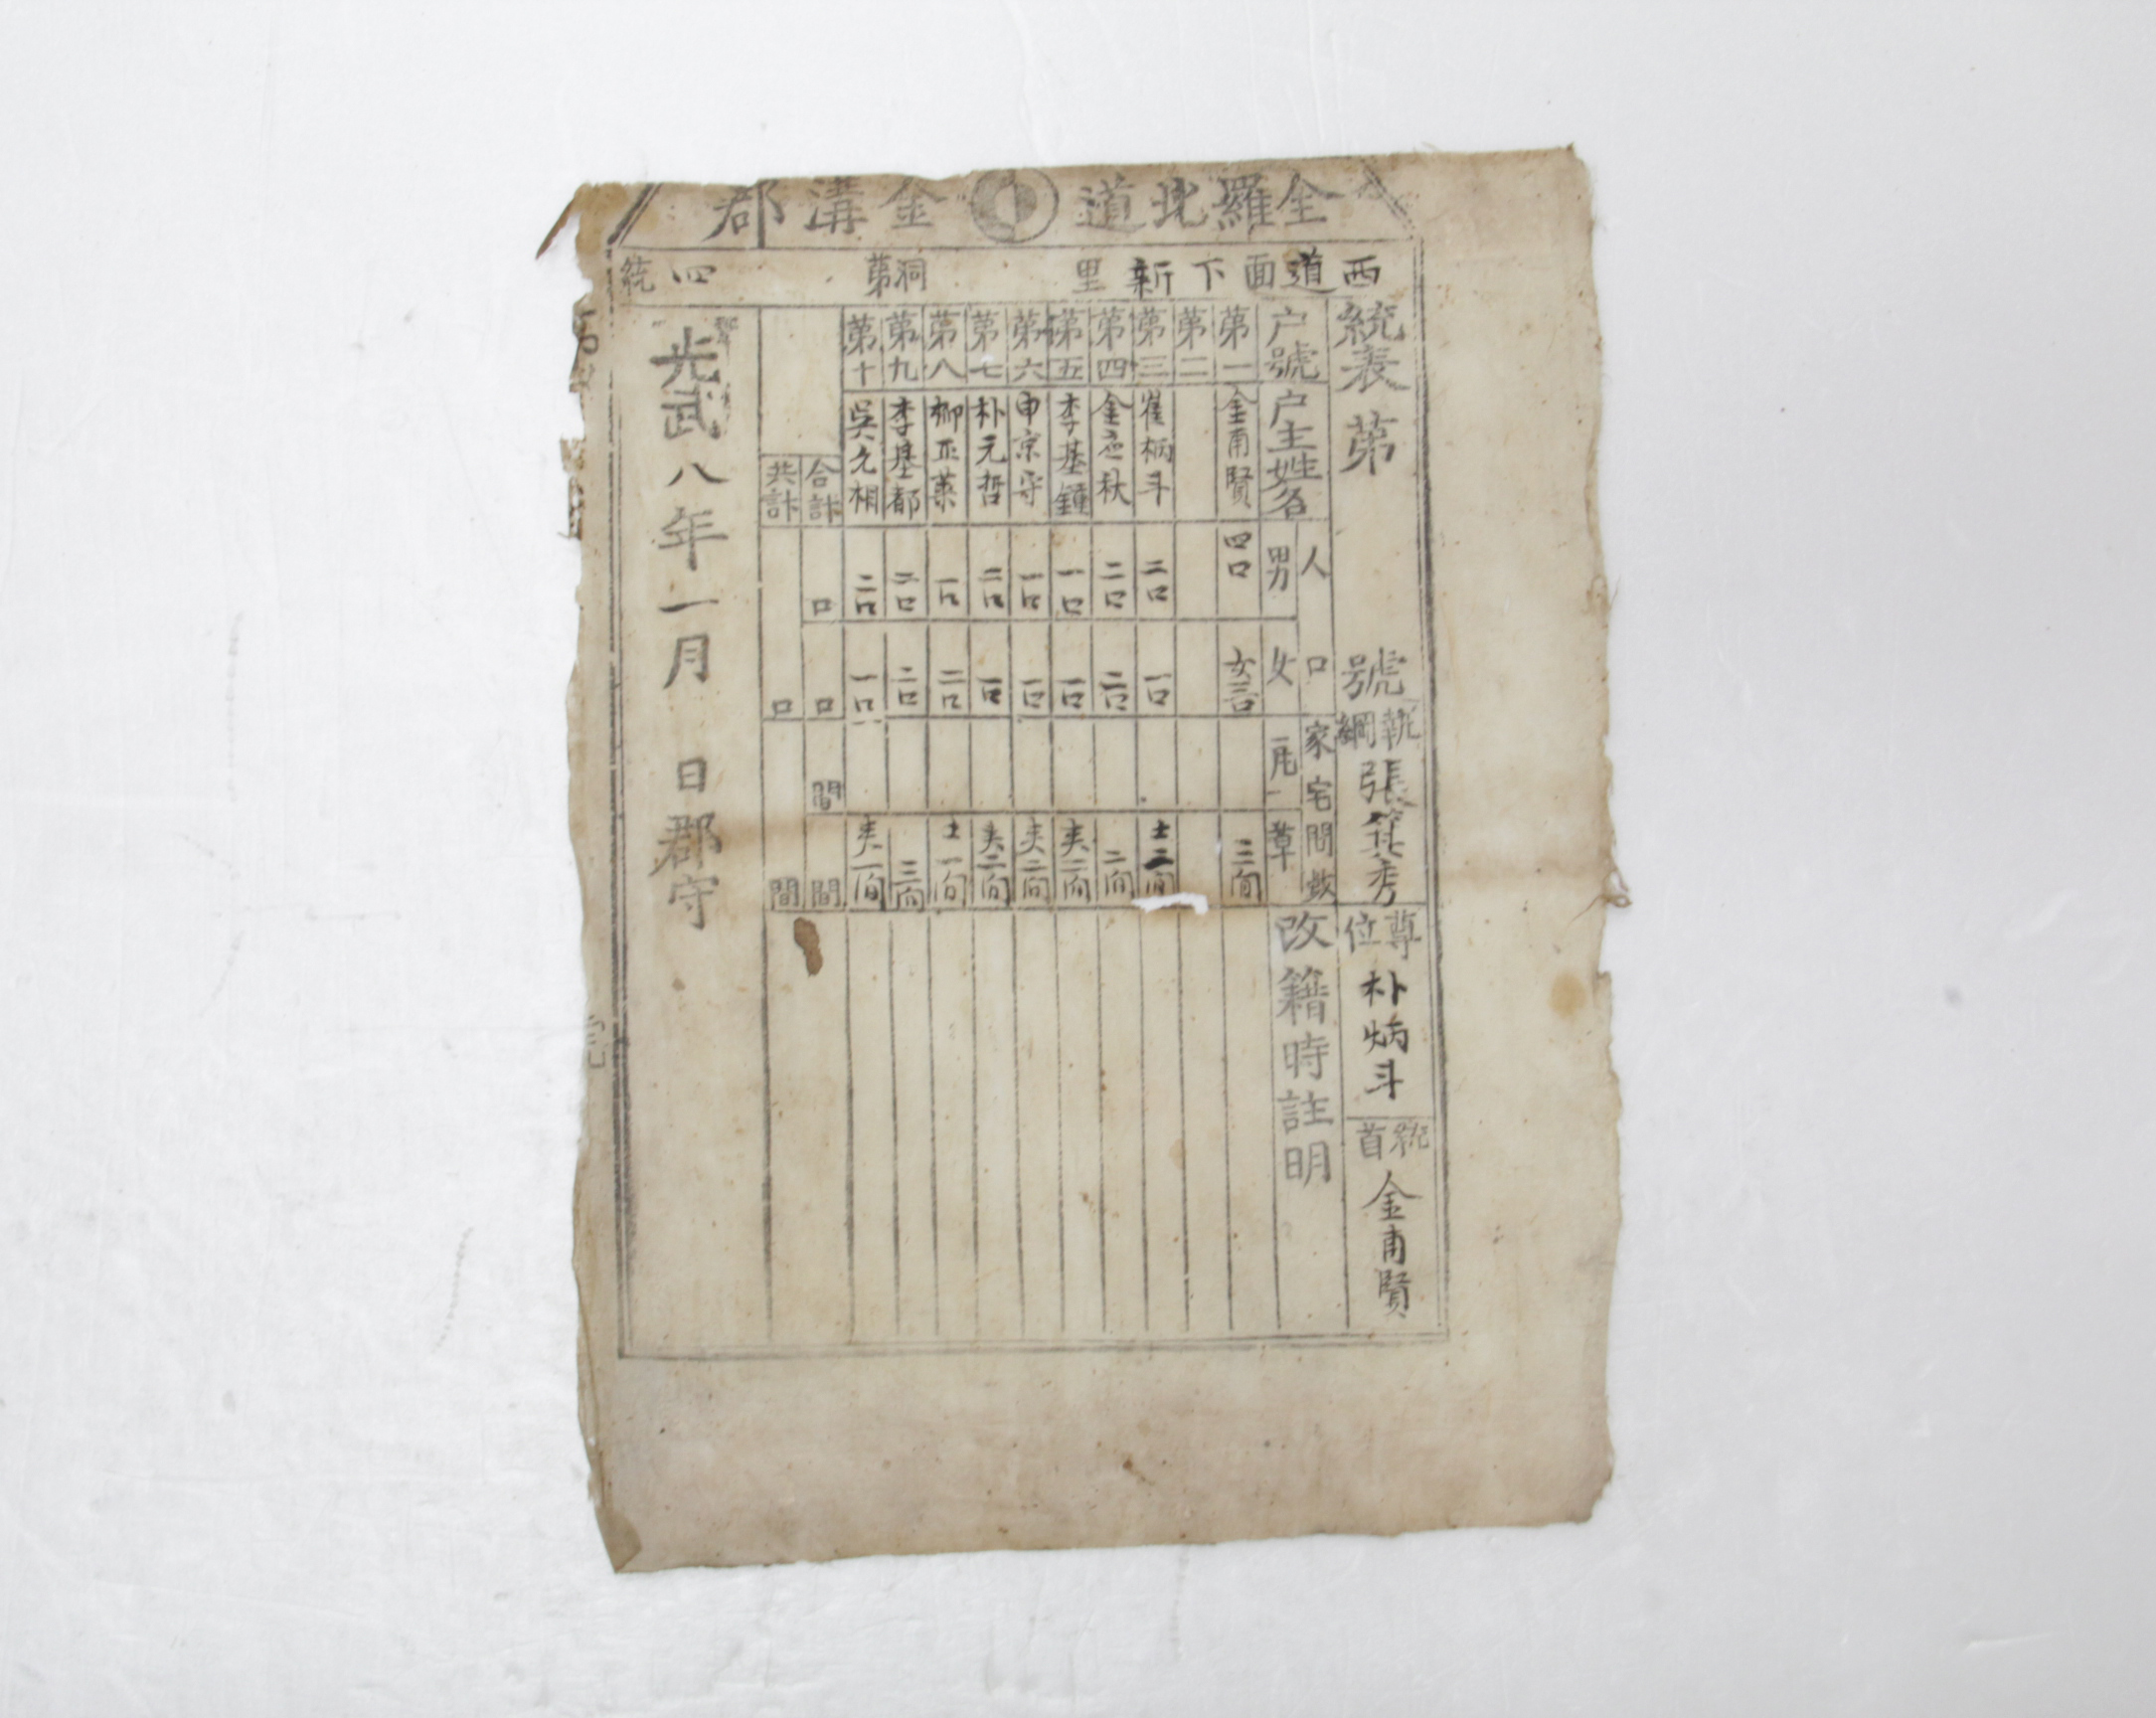 全羅北道 金溝郡
西道面下新里 洞第四統
統表第 號
執綱 張箕秀
尊位 朴炳斗
統首 金甫賢
户號 户主姓名 人口 男 女 家宅間數 瓦 草 改籍時註明
第一 金甫賢 四口 女三口 三间
第二
第三 崔柄斗 二口 一口 土二间
第四 金 秋 二口 二口 二间
第五 李基鍾 一口 一口 夾三间
第六 申京守 一口 一口 夾二间
第七 朴元哲 二口 一口 夾二间
第八 柳 一口 二口 土一间
第九 李基都 二口 二口 三间
第十 吳允相 二口 一口 夾二间
合計 口 口 間 間
共計 口 間
光武八年一月 日郡守